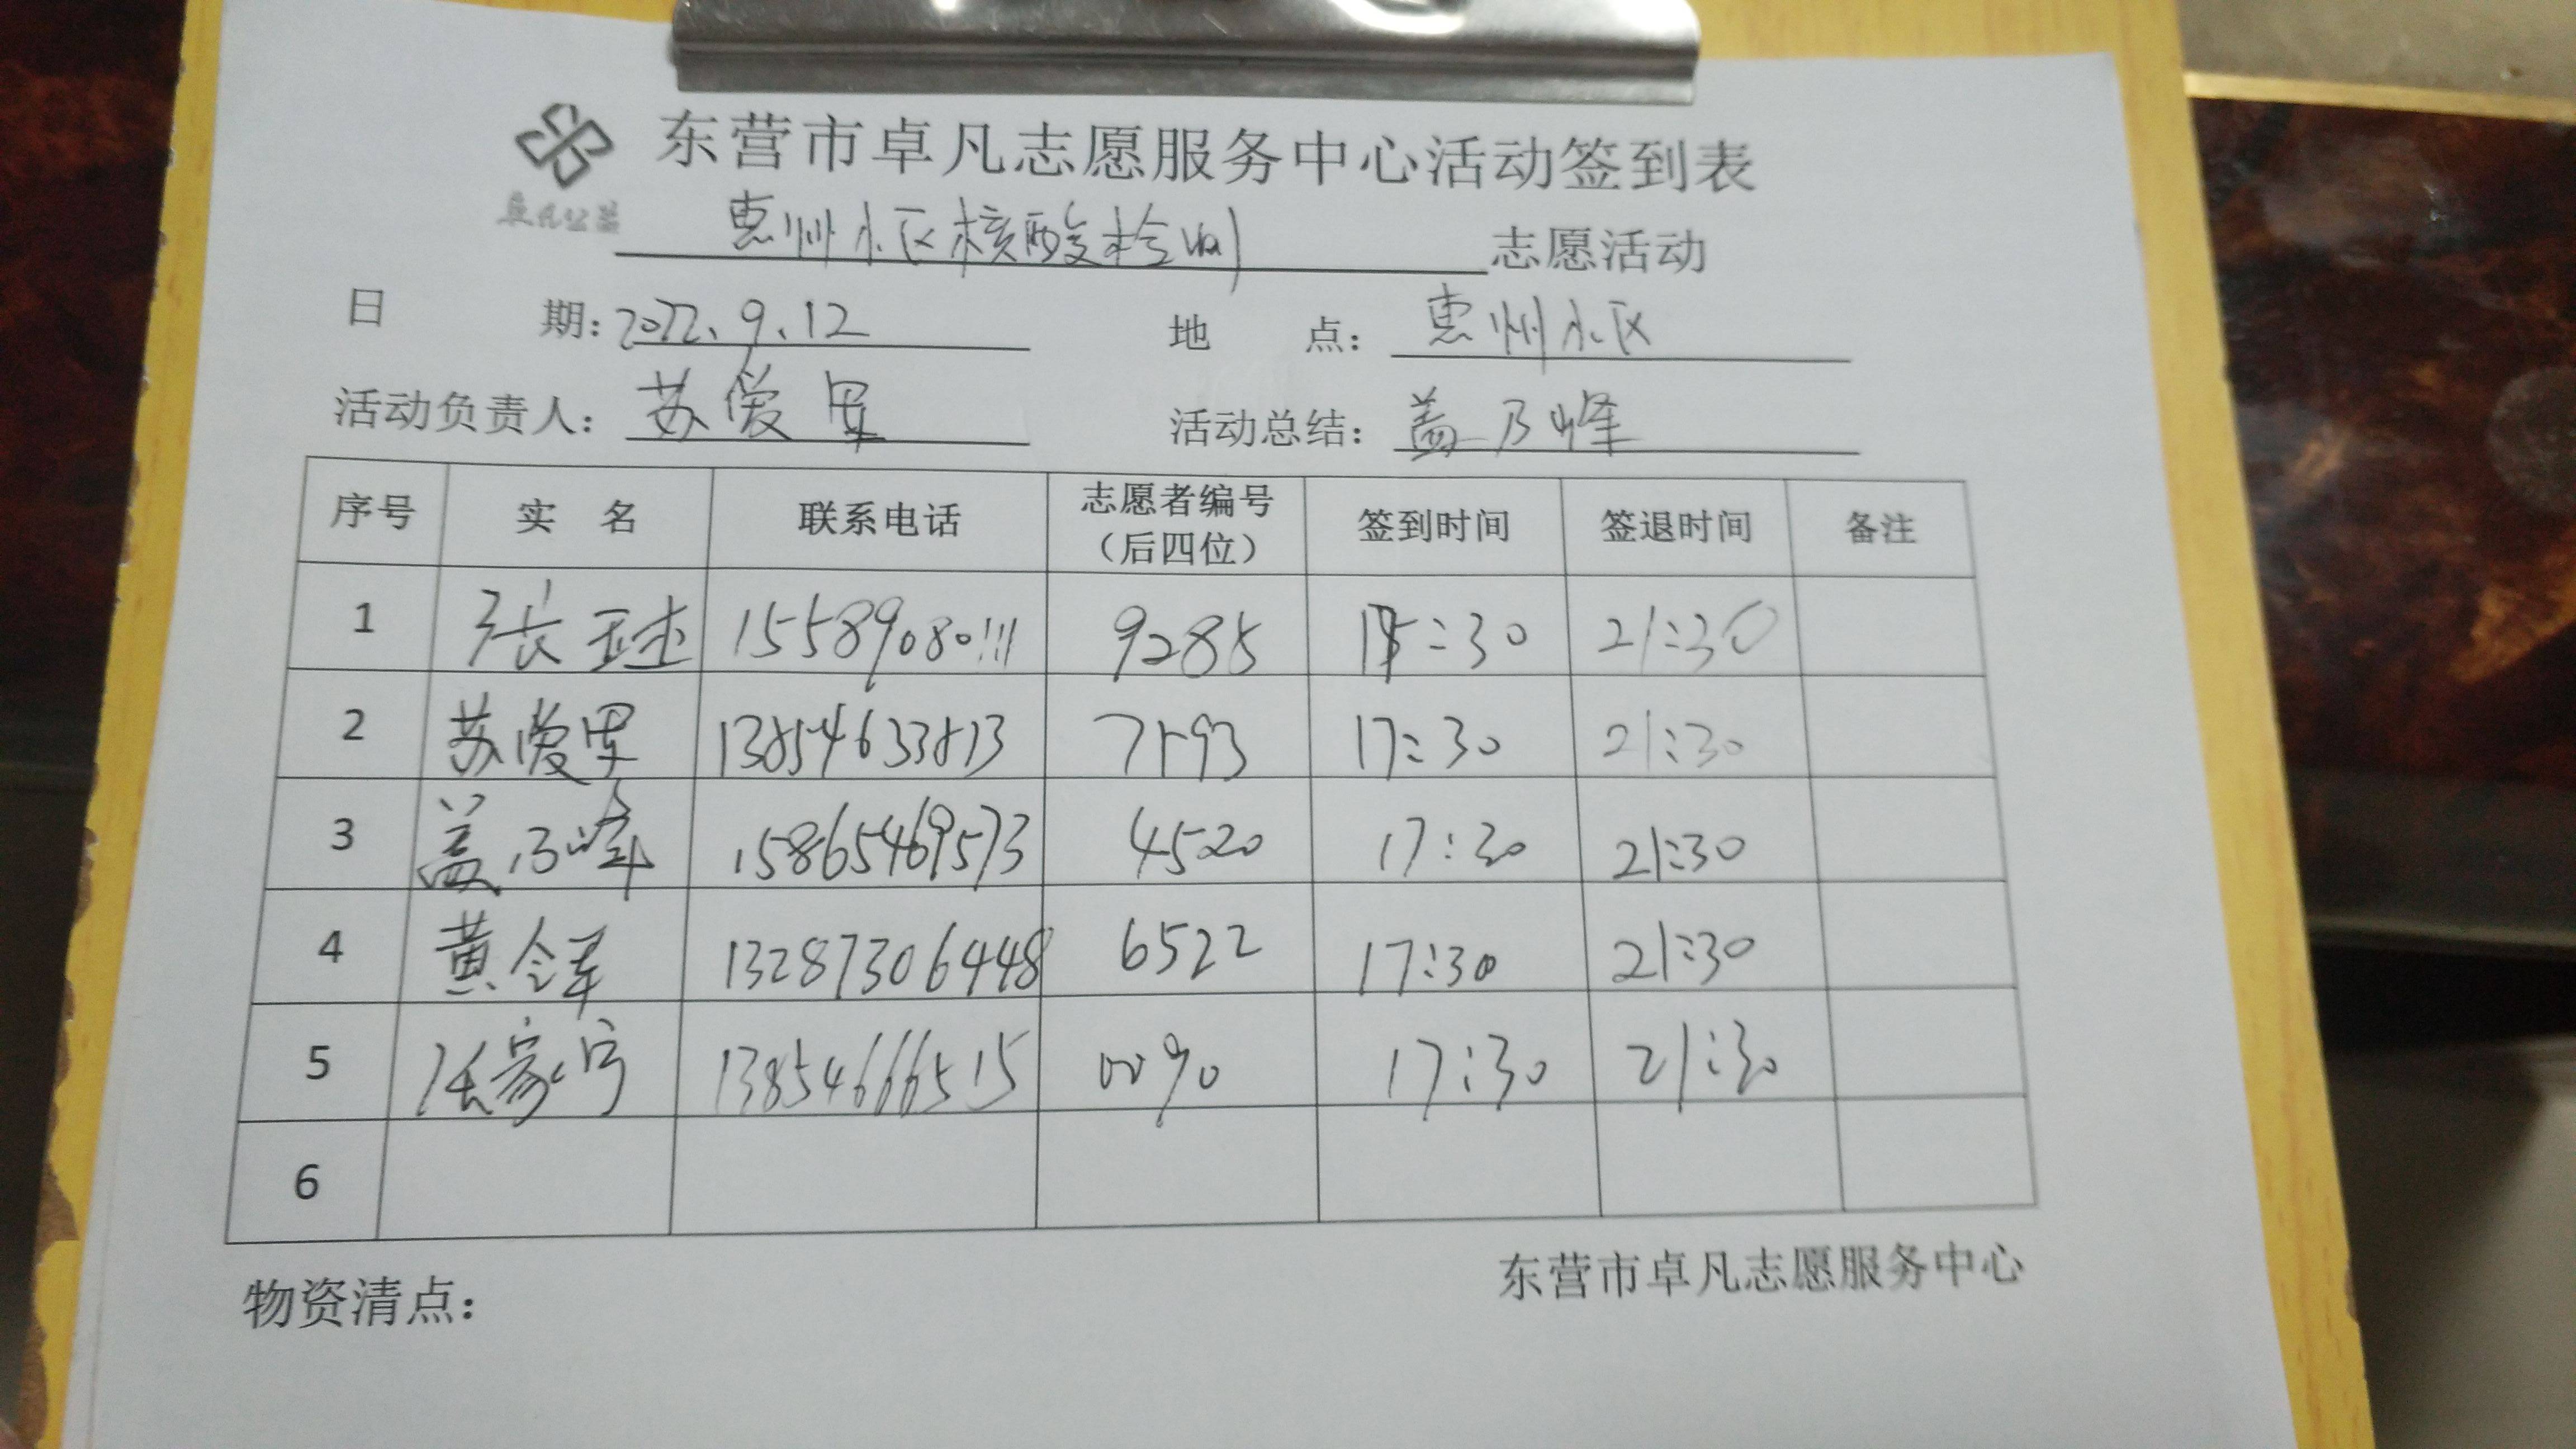 东营市卓凡志愿服务中心活动签到表
卓凡公益
惠州小区核酸检测 志愿活动
日 期：2022.9.12 地 点：惠州小区
活动负责人：苏爱军 活动总结：盖乃峰
序号 实 名 联系电话 志愿者编号（后四位） 签到时间 签退时间 备注
1 张 15589080111 9285 :30 21:30
2 苏爱军 13854633813 7593 17:30 21:30
3 盖乃峰 15865469573 4520 17:30 21:30
4 黄金军 13287306448 6522 17:30 21:30
5 张家宁 13854666515 0090 17:30 21:30
6
物资清点：
东营市卓凡志愿服务中心